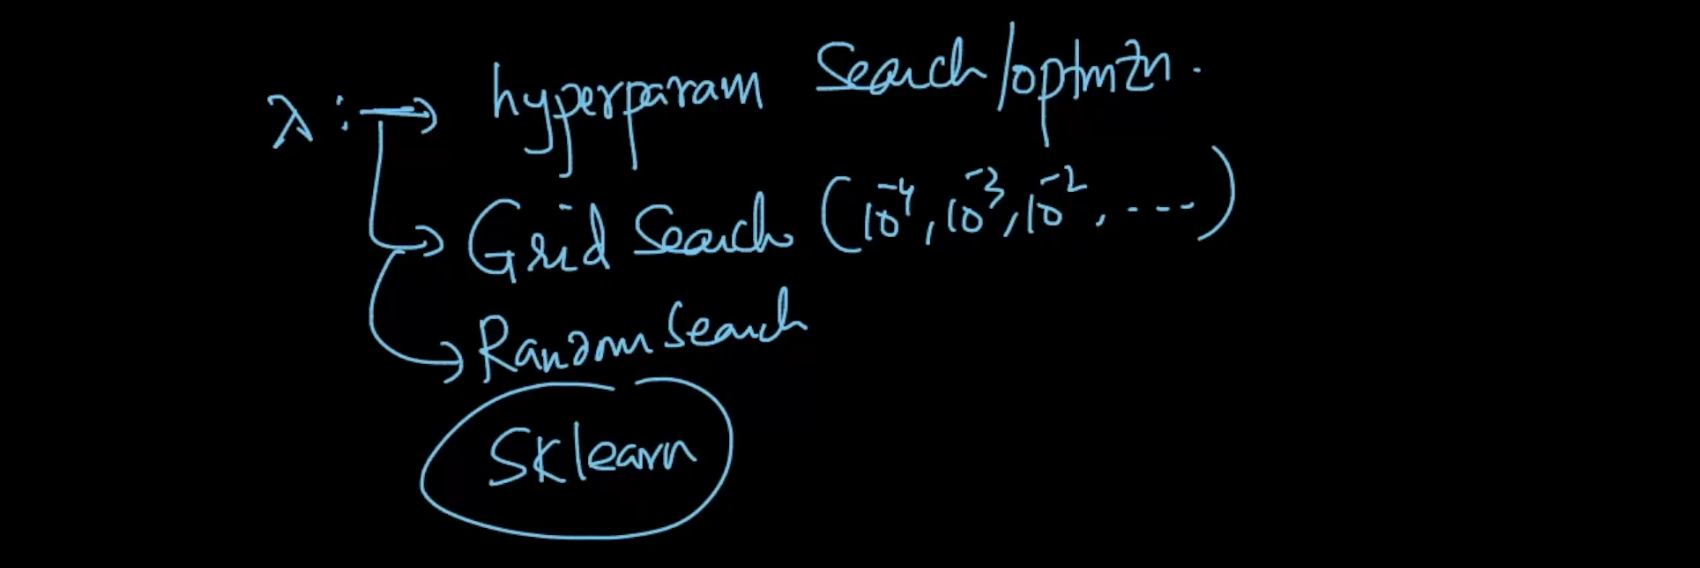 λ: → hyperparam Search/optmzn.
→ Grid Search (10⁻⁴, 10⁻³, 10⁻², ....)
→ Random Search
Sklearn